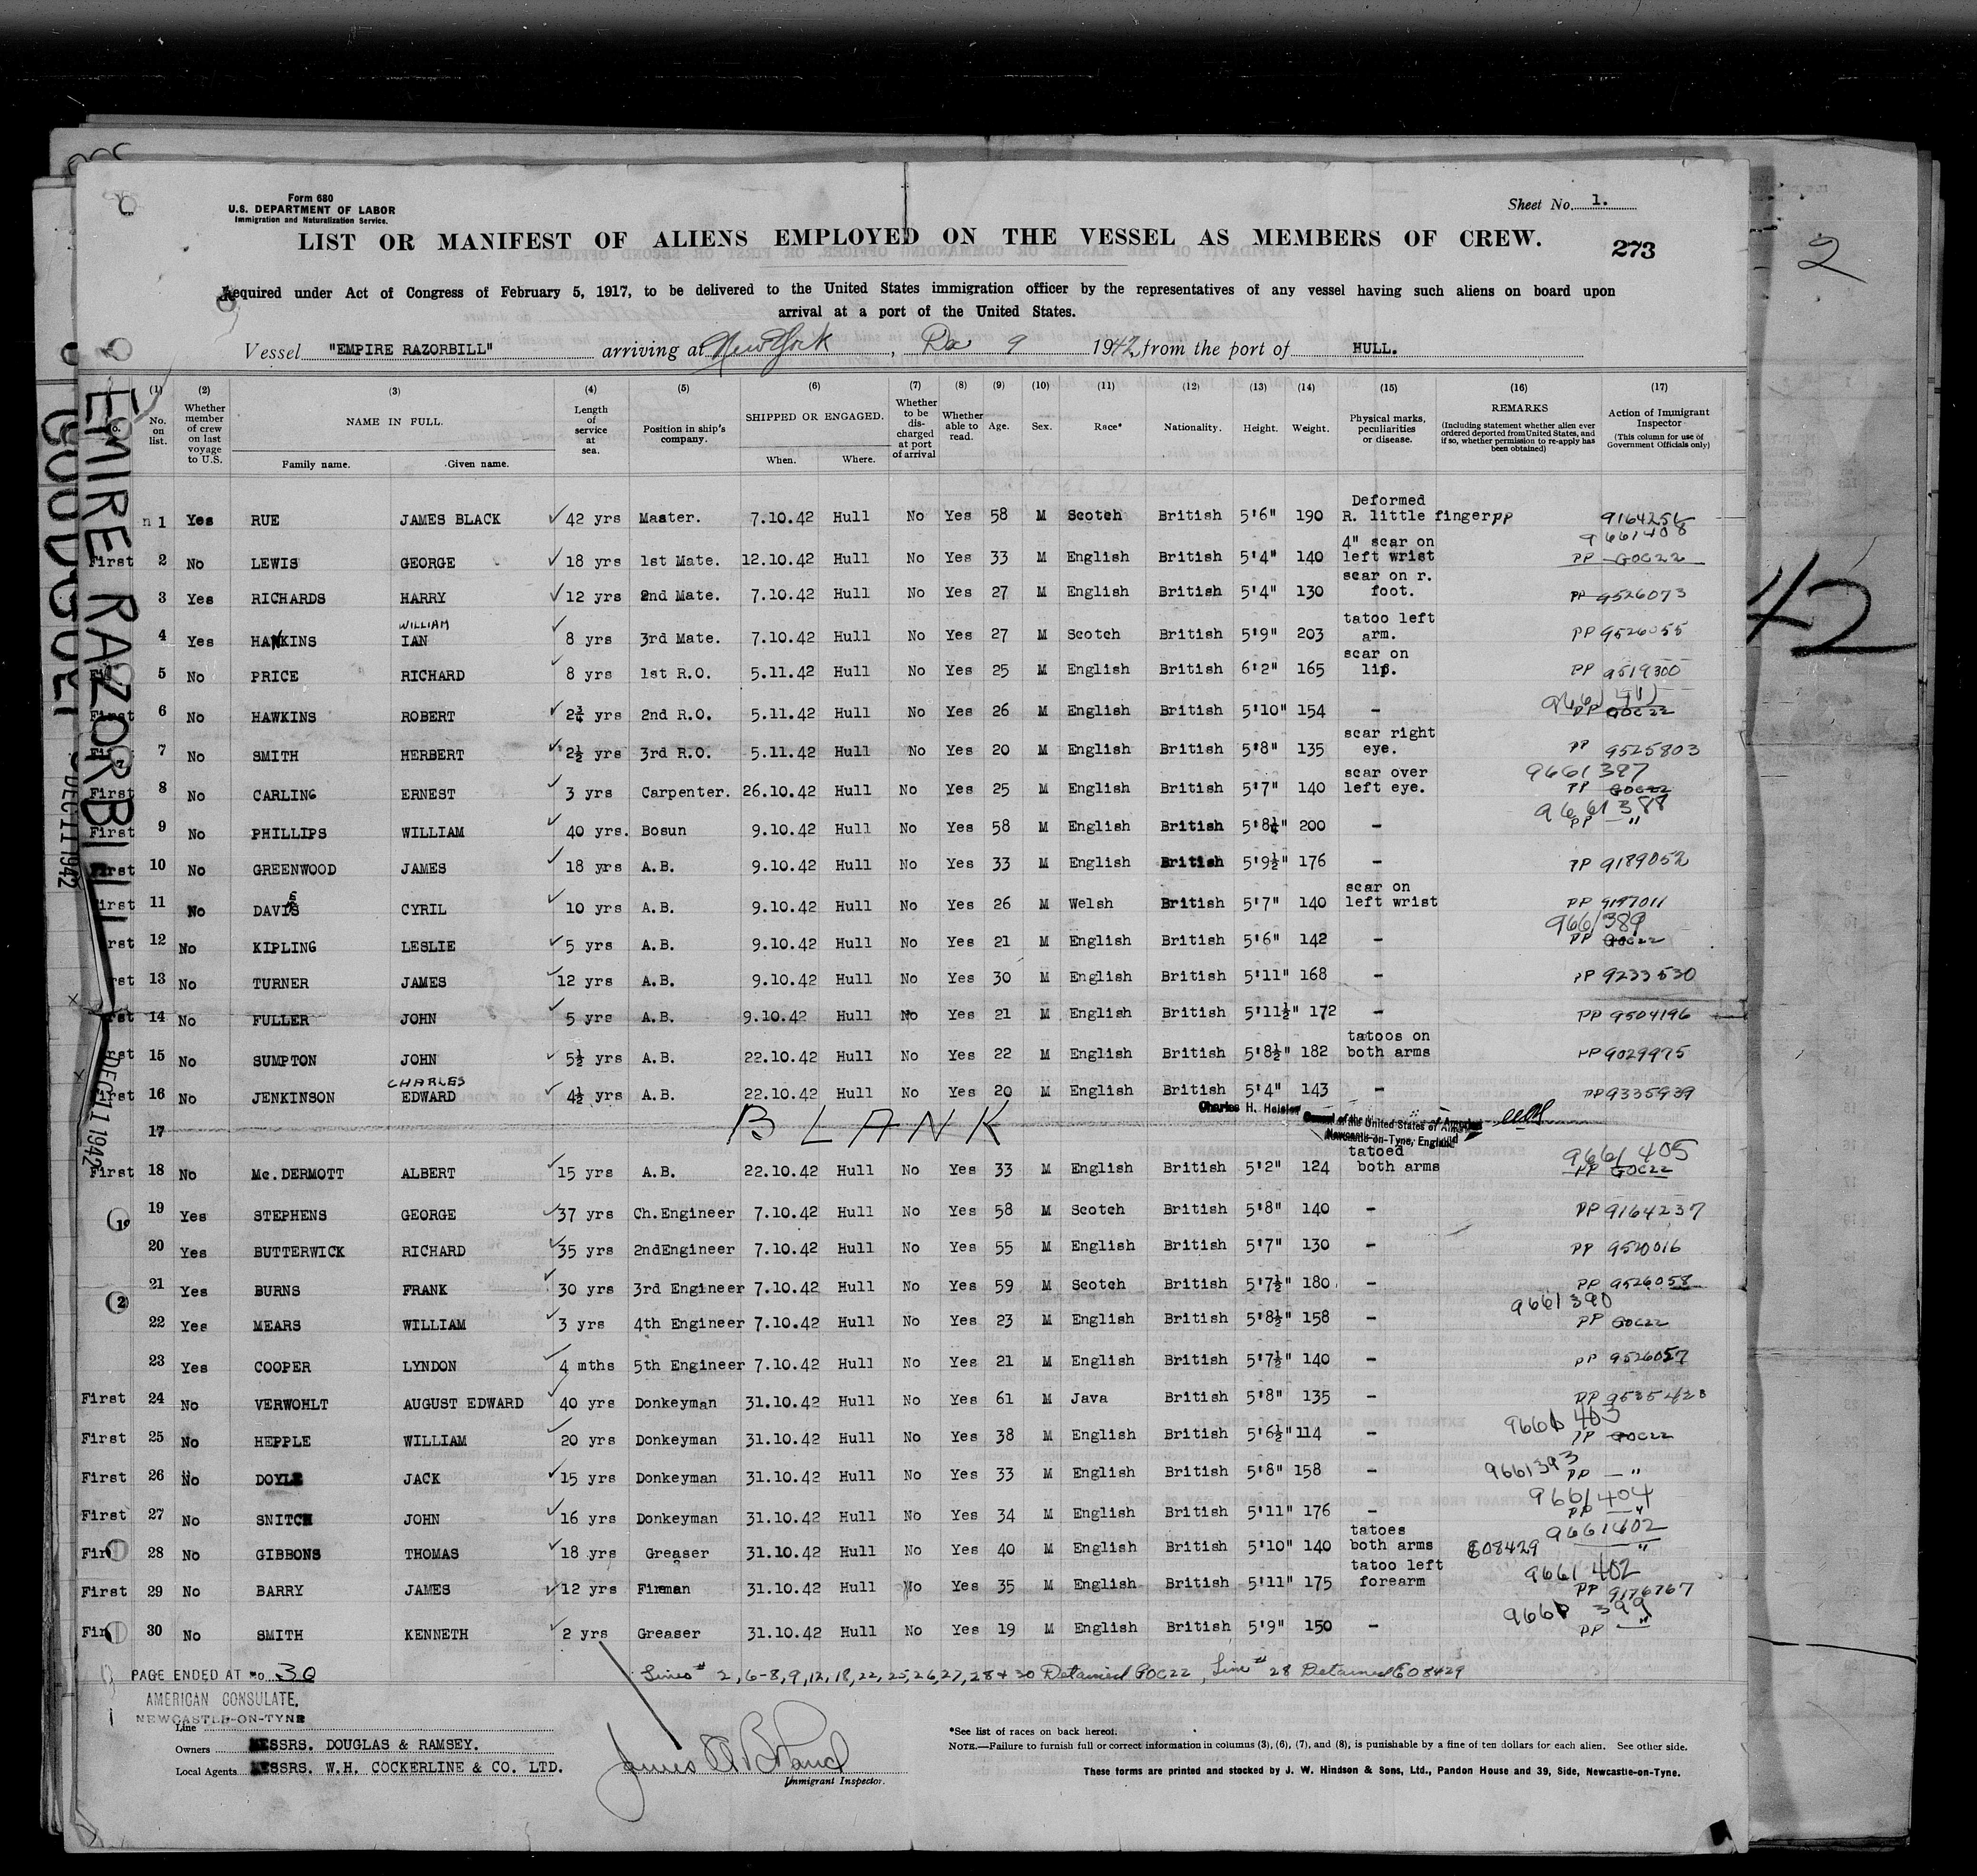 Form 680
U.S. DEPARTMENT OF LABOR
Immigration and Naturalization Service.
Sheet No. 1.
LIST OR MANIFEST OF ALIENS EMPLOYED ON THE VESSEL AS MEMBERS OF CREW.
273
2
Required under Act of Congress of February 5, 1917, to be delivered to the United States immigration officer by the representatives of any vessel having such aliens on board upon
arrival at a port of the United States.
Vessel "EMPIRE RAZORBILL" arriving at New York, Dec 9 1942 from the port of HULL.
(1) No. on list.
(2) Whether member of crew on last voyage to U.S.
(3) NAME IN FULL. Family name. Given name.
(4) Length of service at sea.
(5) Position in ship's company.
(6) SHIPPED OR ENGAGED. When. Where.
(7) Whether to be discharged at port of arrival
(8) Whether able to read.
(9) Age.
(10) Sex.
(11) Race*
(12) Nationality.
(13) Height.
(14) Weight.
(15) Physical marks, peculiarities or disease.
(16) REMARKS (Including statement whether alien ever ordered deported from United States, and if so, whether permission to re-apply has been obtained)
(17) Action of Immigrant Inspector (This column for use of Government Officials only)
1 Yes RUE JAMES BLACK 42 yrs Master. 7.10.42 Hull No Yes 58 M Scotch British 5'6" 190 Deformed R. little finger PP
First 2 No LEWIS GEORGE 18 yrs 1st Mate. 12.10.42 Hull No Yes 33 M English British 5'4" 140 4" scar on left wrist 9661408 PP GOC22
3 Yes RICHARDS HARRY 12 yrs 2nd Mate. 7.10.42 Hull No Yes 27 M English British 5'4" 130 scar on r. foot. PP 9526073
4 Yes HAWKINS WILLIAM IAN 8 yrs 3rd Mate. 7.10.42 Hull No Yes 27 M Scotch British 5'9" 203 tatoo left arm. PP 9526055
5 No PRICE RICHARD 8 yrs 1st R.O. 5.11.42 Hull No Yes 25 M English British 6'2" 165 scar on lip. PP 9519300
First 6 No HAWKINS ROBERT 2¾ yrs 2nd R.O. 5.11.42 Hull No Yes 26 M English British 5'10" 154 - PP GOC22
7 No SMITH HERBERT 2½ yrs 3rd R.O. 5.11.42 Hull No Yes 20 M English British 5'8" 135 scar right eye. PP 9525803
First 8 No CARLING ERNEST 3 yrs Carpenter. 26.10.42 Hull No Yes 25 M English British 5'7" 140 scar over left eye. 9661397 PP GOC22
First 9 No PHILLIPS WILLIAM 40 yrs. Bosun 9.10.42 Hull No Yes 58 M English British 5'8¼" 200 - 9661388 PP "
First 10 No GREENWOOD JAMES 18 yrs A.B. 9.10.42 Hull No Yes 33 M English British 5'9½" 176 - PP 9189052
First 11 No DAVIES CYRIL 10 yrs A.B. 9.10.42 Hull No Yes 26 M Welsh British 5'7" 140 scar on left wrist PP 9197011
First 12 No KIPLING LESLIE 5 yrs A.B. 9.10.42 Hull No Yes 21 M English British 5'6" 142 - 9661389 PP GOC22
First 13 No TURNER JAMES 12 yrs A.B. 9.10.42 Hull No Yes 30 M English British 5'11" 168 - PP 9233530
First 14 No FULLER JOHN 5 yrs A.B. 9.10.42 Hull No Yes 21 M English British 5'11½" 172 - PP 9504196
First 15 No SUMPTON JOHN 5½ yrs A.B. 22.10.42 Hull No Yes 22 M English British 5'8½" 182 tatoos on both arms PP 9029975
First 16 No JENKINSON CHARLES EDWARD 4½ yrs A.B. 22.10.42 Hull No Yes 20 M English British 5'4" 143 - PP 9335939
17 BLANK
Charles H. Heisler
Consul of the United States of America
Newcastle-on-Tyne, England
First 18 No Mc.DERMOTT ALBERT 15 yrs A.B. 22.10.42 Hull No Yes 33 M English British 5'2" 124 tatoed both arms 9661405 PP GOC22
19 Yes STEPHENS GEORGE 37 yrs Ch.Engineer 7.10.42 Hull No Yes 58 M Scotch British 5'8" 140 - PP 9164237
20 Yes BUTTERWICK RICHARD 35 yrs 2ndEngineer 7.10.42 Hull No Yes 55 M English British 5'7" 130 - PP 9520016
21 Yes BURNS FRANK 30 yrs 3rd Engineer 7.10.42 Hull No Yes 59 M Scotch British 5'7½" 180 - PP 9526058
22 Yes MEARS WILLIAM 3 yrs 4th Engineer 7.10.42 Hull No Yes 23 M English British 5'8½" 158 - 9661390 PP GOC22
23 Yes COOPER LYNDON 4 mths 5th Engineer 7.10.42 Hull No Yes 21 M English British 5'7½" 140 - PP 9526057
First 24 No VERWOHLT AUGUST EDWARD 40 yrs Donkeyman 31.10.42 Hull No Yes 61 M Java British 5'8" 135 - PP
First 25 No HEPPLE WILLIAM 20 yrs Donkeyman 31.10.42 Hull No Yes 38 M English British 5'6½" 114 - PP GOC22
First 26 No DOYLE JACK 15 yrs Donkeyman 31.10.42 Hull No Yes 33 M English British 5'8" 158 - 9661393 PP "
First 27 No SNITCH JOHN 16 yrs Donkeyman 31.10.42 Hull No Yes 34 M English British 5'11" 176 - 9661404 PP "
First 28 No GIBBONS THOMAS 18 yrs Greaser 31.10.42 Hull No Yes 40 M English British 5'10" 140 tatoes both arms E08429 "
First 29 No BARRY JAMES 12 yrs Fireman 31.10.42 Hull No Yes 35 M English British 5'11" 175 tatoo left forearm 9661402 PP 9176767
First 30 No SMITH KENNETH 2 yrs Greaser 31.10.42 Hull No Yes 19 M English British 5'9" 150 - PP "
Lines # 2,6-8,9,12,18,22,25,26,27,28 & 30 Detained GOC22, Line # 28 Detained E08429
PAGE ENDED AT No. 30
AMERICAN CONSULATE,
NEWCASTLE-ON-TYNE
Line
Owners MESSRS. DOUGLAS & RAMSEY.
Local Agents MESSRS. W.H. COCKERLINE & CO. LTD.
Immigrant Inspector.
*See list of races on back hereof.
NOTE.—Failure to furnish full or correct information in columns (3), (6), (7), and (8), is punishable by a fine of ten dollars for each alien. See other side.
These forms are printed and stocked by J. W. Hindson & Sons, Ltd., Pandon House and 39, Side, Newcastle-on-Tyne.
EMIRE RAZORBILL
DEC 11 1942
DEC 11 1942
42